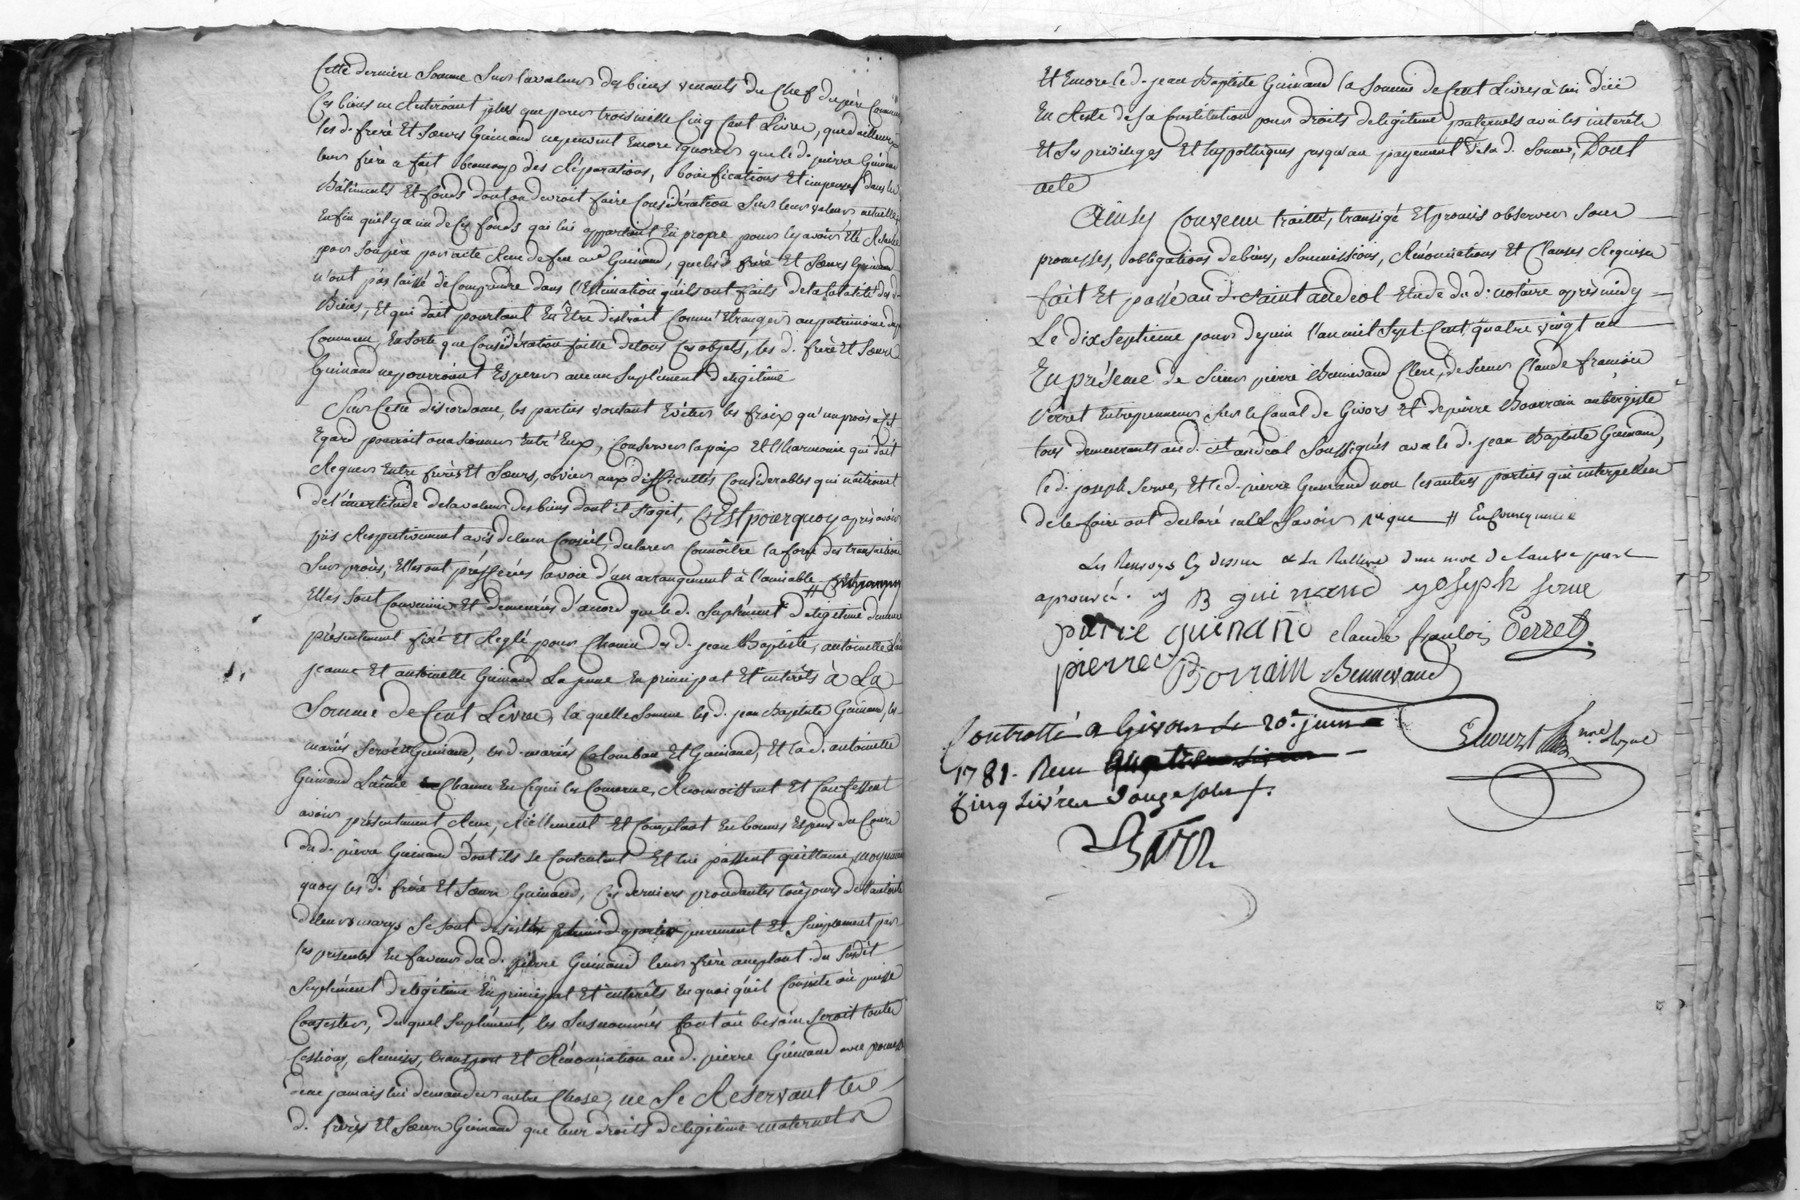 Cette derniere Somme Sur la valeur des biens venants du Chef du père Commun
Ces biens ne s'estimant plus que pour trois mille Cinq Cent Livres, que d'ailleurs
les d. frere Et Sœurs Guinand ne peuvent Encore ignorer que le d. pierre Guinand
leur frère a fait beaucoup des Réparations, bonifications Et impenses dans les
Bâtiments Et fonds dont on devroit faire Considération Sur leur valeur actuelle,
Enfin qu'il y a un de Ces fonds qui lui appartient En propre pour l'avoir Eté
par Son père par acte Reçu de feu me Guinand, que les d. frère Et Sœurs Guinand
n'ont pas laissé de Comprendre dans l'Estimation qu'ils ont faits de la totalité des d.
Biens, Et qui doit pourtant En Etre distrait Comme Etranger au patrimoine du père
Commun, En Sorte que Considération faitte de tous Ces objets, les d. frère Et Sœurs
Guinand ne pourroient Esperer aucun Suplément de légitime
Sur Cette discordance, les parties voulant Eviter les fraix qu'un procès à Cet
Egard pourroit occasionner Entr'Eux, Conserver la paix Et l'harmonie qui doit
Regner Entre frères Et Sœurs, obvier aux difficultés Considerables qui naîtroient
de l'incertitude de la valeur des biens dont il S'agit, C'Est pourquoy après avoir
pris Respectivement avis de leur Conseil, declarer Connoître la force des transactions
Sur procès, Elles ont préférées la voie d'un arrangement à l'amiable #
Elles Sont Convenües Et demeurées d'accord que le d. Suplément de légitime demeure
présentement fixé Et Reglé pour Chacun des d. jean Baptiste, antoinette L'ainée
jeanne Et antoinette Guinand La jeune En principal Et intérêts à La
Somme de Cent Livres, la quelle Somme les d. jean Baptiste Guinand, les
mariés Serve Et Guinand, les d. mariés Colomban Et Guinand, Et la d. antoinette
Guinand L'ainée Chacun En Ce qui les Concerne, Reconnoissent Et Confessent
avoir présentement Reçu, Réellement Et Comptant En bonnes Especes du Cours
du d. pierre Guinand dont ils Se Contentent Et lui passent quittance, moyennant
quoy les d. frère Et Sœurs Guinand, Ces derniers procédantes toujours de l'autorité
de leurs marys Se Sont désistés purement Et Simplement par
les présentes En faveur du d. pierre Guinand leur frère acceptant du Susdit
Suplément de légitime En principal Et intérêts En quoi qu'il Consiste ou puisse
Consister, du quel Suplément, les Susnommés font au besoin Seroit toutes
Cessions, Remises, transport Et Rénonciation au d. pierre Guinand avec promesse
de ne jamais lui demander autre Chose, ne Se Réservant les
d. frères Et Sœurs Guinand que leur droits de légitime maternels
Et Encore le d. jean Baptiste Guinand la Somme de Cent Livres à lui düe
En Reste de Sa Constitution pour droits de légitime paternels avec les intérêts
Et Ses privileges Et hypotheques jusqu'au payement de la d. Somme, Dont
acte
Ainsy Convenu traitté, transigé Et promis observer Sous
promesses, obligations de biens, Soumissions, Rénonciations Et Clauses Requises
fait Et passé au d. Saint andéol Etude du d. notaire après midy
Le dix Septieme jour de juin l'an mil Sept Cent quatre vingt un
En présence de Sieur pierre Bennevaud Clerc, de Sieur Claude francois
Perret Entrepreneur Sur le Canal de Givors Et de pierre Bourrain aubergiste
tous demeurants au d. St andéol Soussignés avec le d. jean Baptiste Guinand,
le d. joseph Serve, Et le d. pierre Guinand non les autres parties qui interpellées
de le faire ont declaré ne Savoir # En Consequence
Les Renvoys Cy dessus & La Rature d'un mot de l'autre part
aprouvés. j B guinand joseph serve
pierre guinand claude françois Perret
pierre Borrain Bennevaud
Controllé a Givors Le 20e juin
1781. Recu
Cinq Livres Douze sols